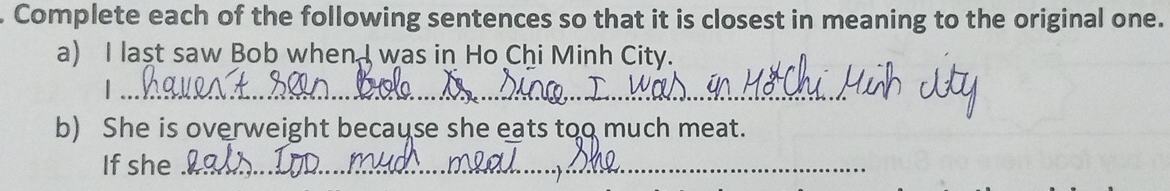 . Complete each of the following sentences so that it is closest in meaning to the original one.
a) I last saw Bob when I was in Ho Chi Minh City.
I haven't seen Bob since I was in Hồ Chi Minh city
b) She is overweight because she eats too much meat.
If she eats too much meat, she